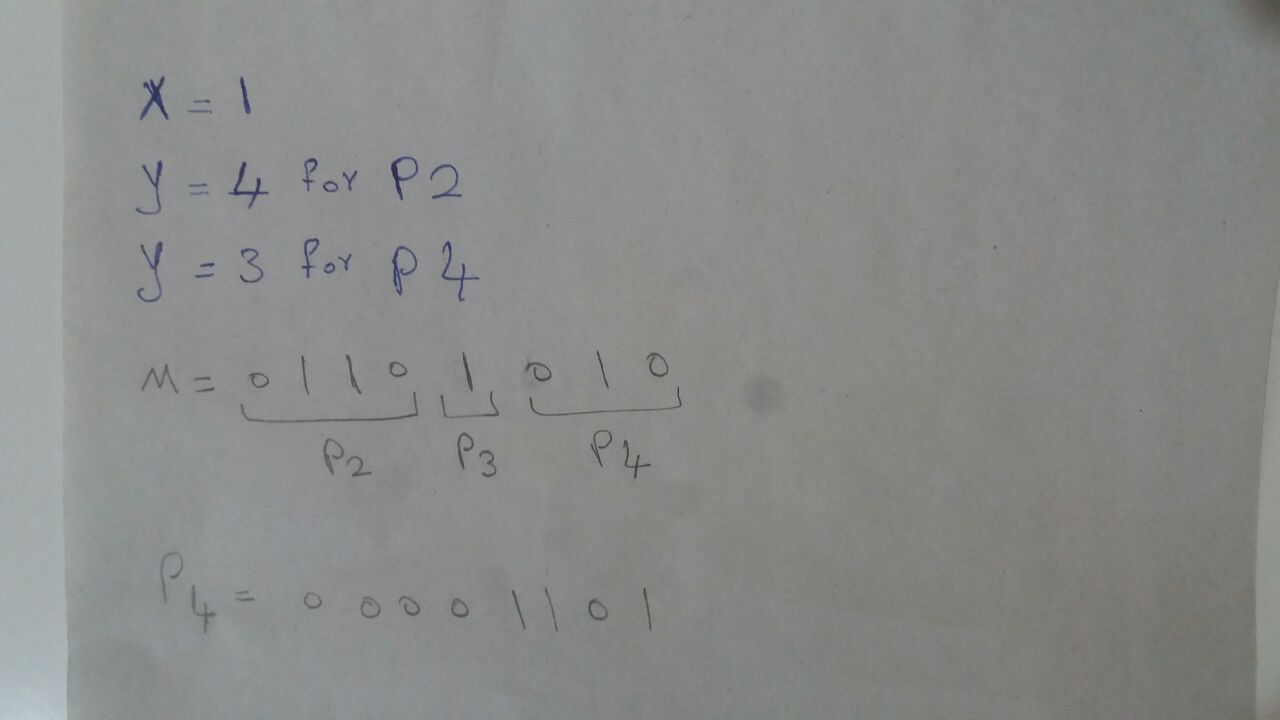 X = 1
y = 4 for P2
y = 3 for P4
M = 0 1 1 0 1 0 1 0
P2 P3 P4
P4 = 0 0 0 0 1 1 0 1